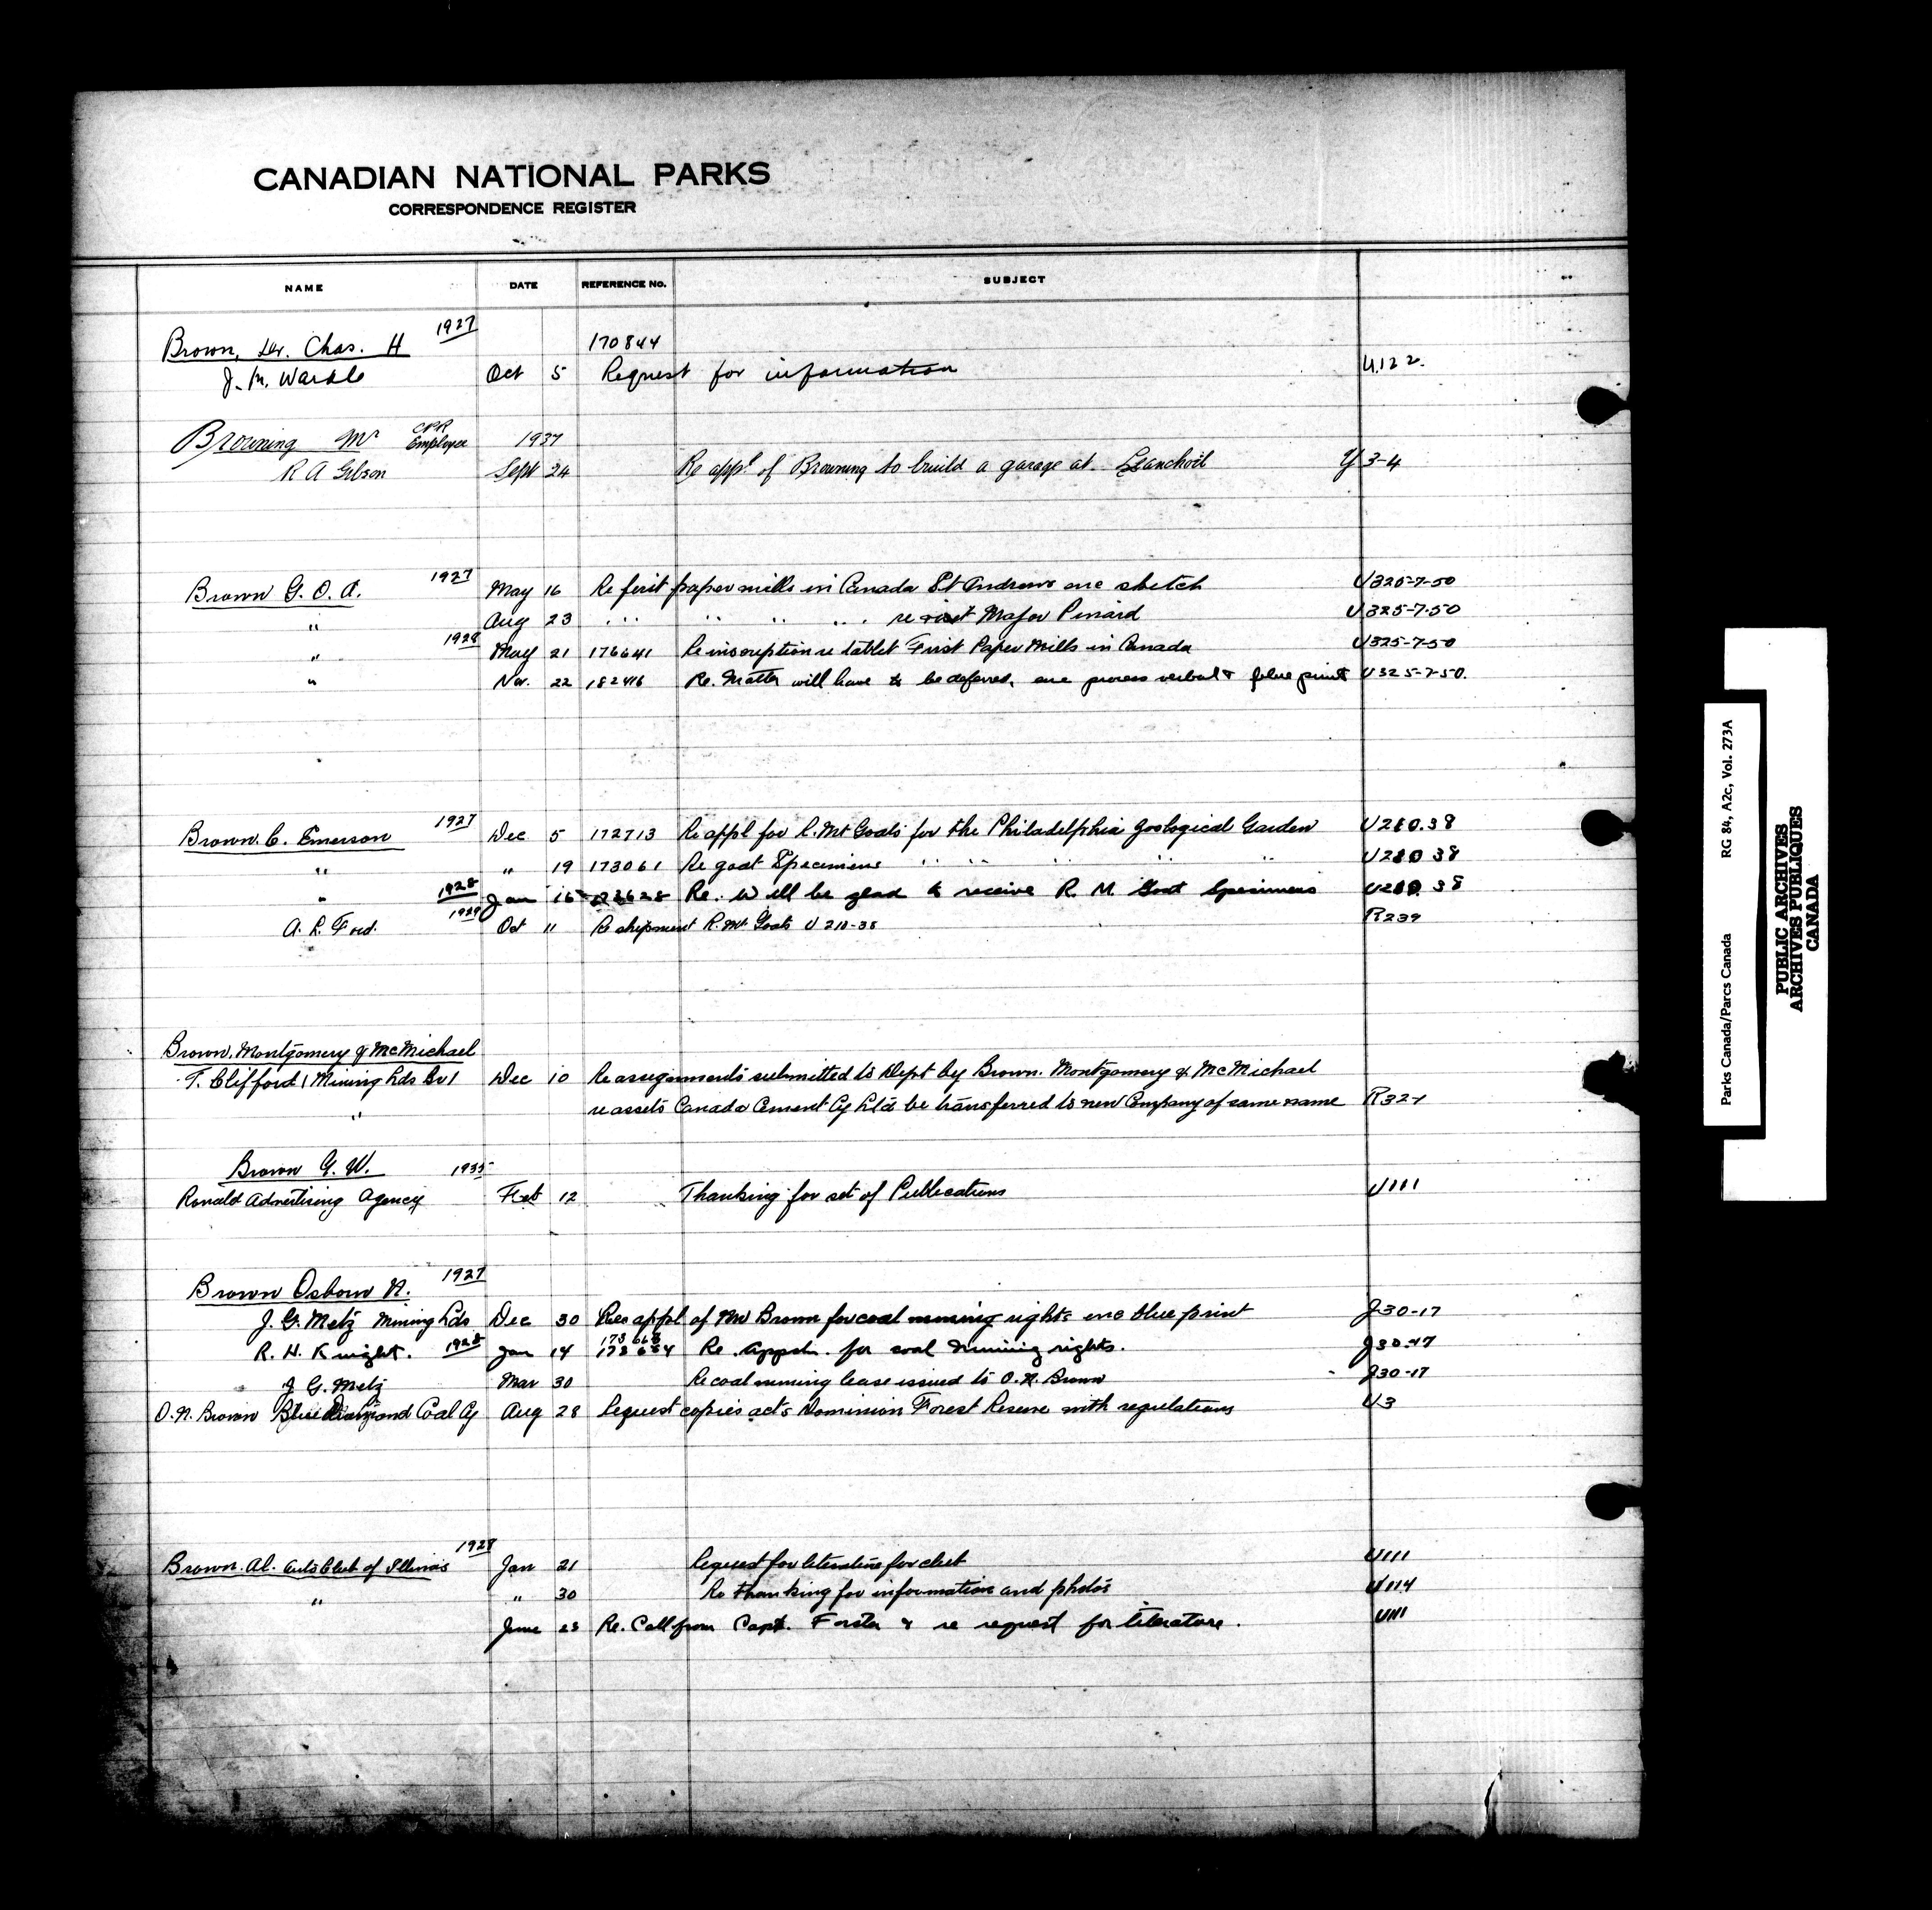 CANADIAN NATIONAL PARKS
CORRESPONDENCE REGISTER
NAME DATE REFERENCE No. SUBJECT
Brown, Dr. Chas. H 1927 170844
J. M. Wardle Oct 5 Request for information U.122.
Browning Mr CPR Employee 1937
R A Gibson Sept 24 Re appl of Browning to build a garage at Leanchoil Y 3-4
Brown G. O. A. 1927 May 16 Re first paper mills in Canada St Andrews enc sketch U325-7-50
" Aug 23 " " " " re visit Major Penard U325-7-50
" 1928 May 21 176641 Re inscription re tablet First Paper Mills in Canada U325-7-50
" Nov. 22 182416 Re. Matter will have to be deferred, enc process verbal & blue print U325-7-50.
Brown. C. Emerson 1927 Dec 5 172713 Re appl for R. Mt Goats for the Philadelphia Zoological Garden U210.38
" " 19 173061 Re goat Specimens " " " " " U210 38
" 1928 Jan 16 Re. Will be glad to receive R. M. Goat Specimens U210. 38
A. L. Ford. 1929 Oct 11 Re shipment R. Mt Goats U 210-38 R239
Brown. Montgomery & McMichael
T. Clifford (Mining Lds Br) Dec 10 Re assignments submitted to Dept by Brown. Montgomery & McMichael
" re assets Canada Cement Cy Ltd be transferred to new Company of same name R321
Brown G. W. 1935
Ronald Advertising Agency Feb 12 Thanking for set of Publications U111
Brown Osborn N. 1927
J. G. Metz Mining Lds Dec 30 Re appl of Mr Brown for coal mining rights enc blue print J30-17
173663
R. H. Knight. 1928 Jan 14 173664 Re. Appln. for coal mining rights. J30-17
J G. Metz Mar 30 Re coal mining lease issued to O. N. Brown J30-17
O. N. Brown Blue Diamond Coal Cy Aug 28 Request copies acts Dominion Forest Reserve with regulations U3
Brown. Al. Auto Club of Illinois 1928 Jan 21 Request for literature for club U111
" " 30 Re thanking for information and photos U114
June 23 Re. Call from Capt. Forster & re request for literature. U111
Parks Canada/Parcs Canada RG 84, A2c, Vol. 273A
PUBLIC ARCHIVES
ARCHIVES PUBLIQUES
CANADA